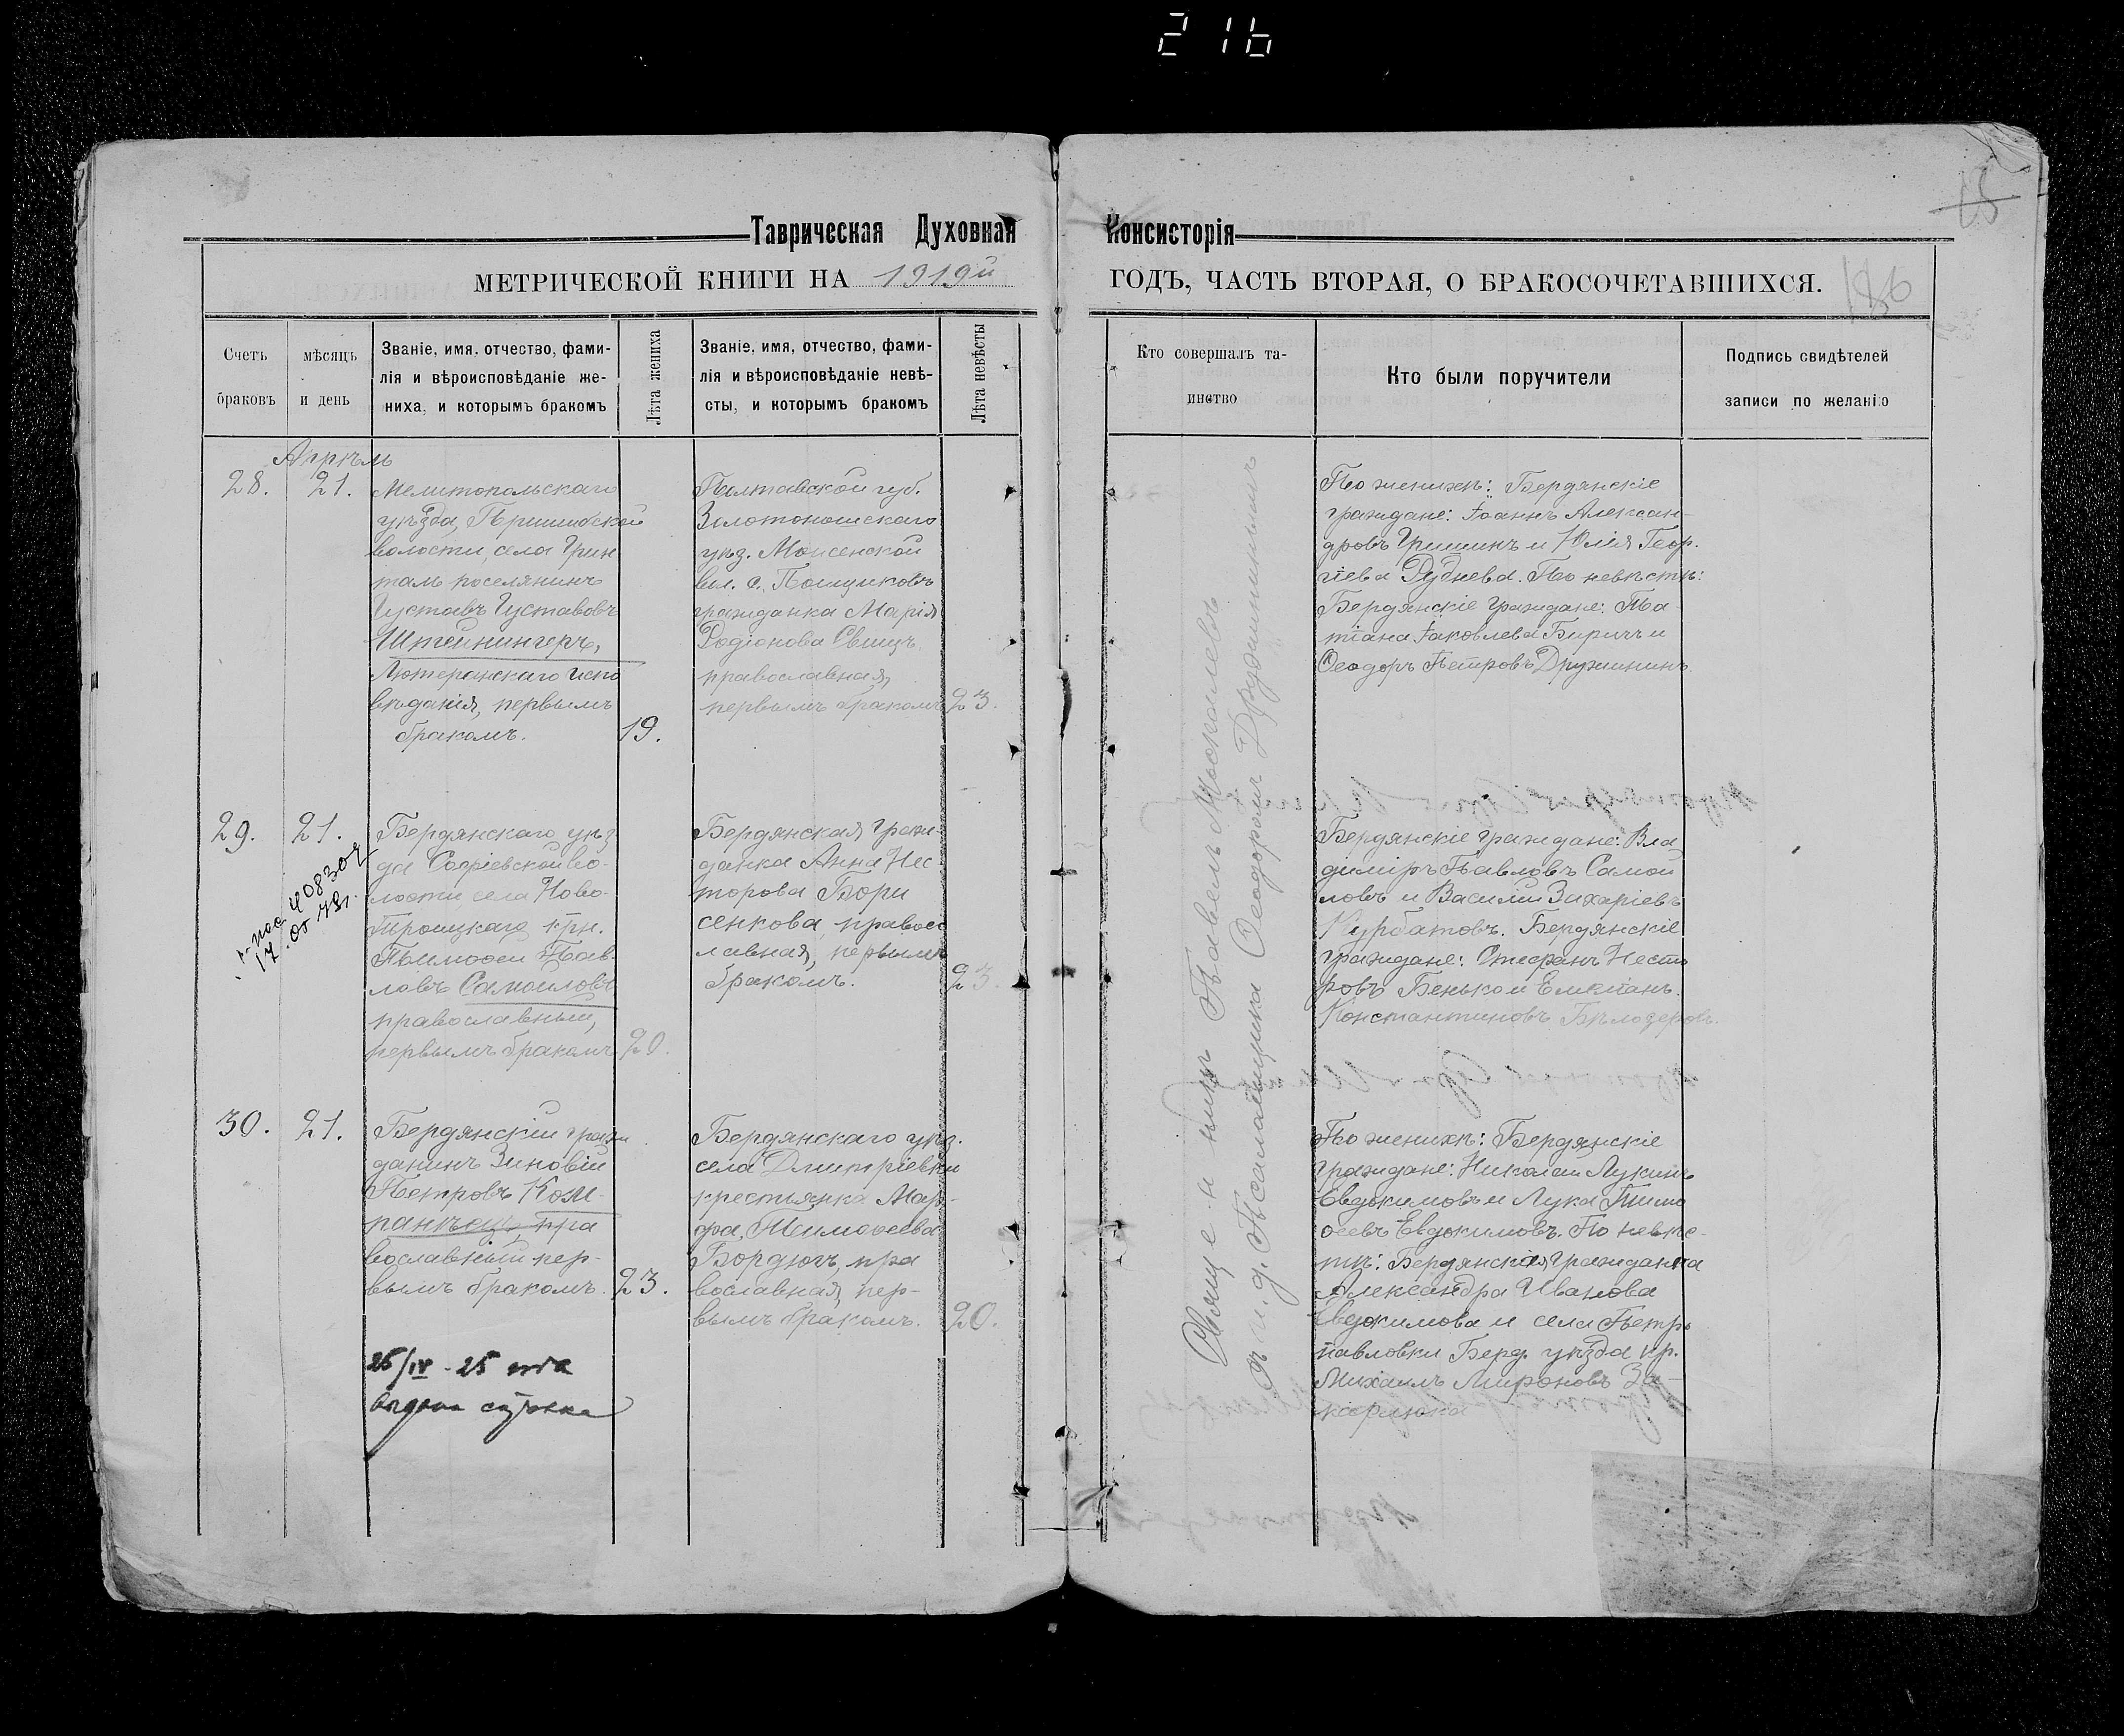 216
Таврическая Духовная Консисторія
МЕТРИЧЕСКОЙ КНИГИ НА 1919й ГОДЪ, ЧАСТЬ ВТОРАЯ, О БРАКОСОЧЕТАВШИХСЯ.
186
Счетъ браковъ
мѣсяцъ и день
Званіе, имя, отчество, фами-
лія и вѣроисповѣданіе же-
ниха, и которымъ бракомъ
Лѣта жениха
Званіе, имя, отчество, фами-
лія и вѣроисповѣданіе невѣ-
сты, и которымъ бракомъ
Лѣта невѣсты
Кто совершалъ та-
инство
Кто были поручители
Подпись свидѣтелей
записи по желанію
Апрѣль
28.
21.
Мелитопольскаго
уѣзда, Пришибской
волости, села Грин
таль поселянинъ
Густавъ Густавовъ
Штейнингеръ,
Лютеранскаго испо
вѣданія, первымъ
бракомъ.
19.
Полтавской губ.
Золотоношскаго
уѣз. Моисенской
вол. с.
гражданка Марія
Родіонова
православная,
первымъ бракомъ
23.
По женихѣ: Бердянскіе
граждане: Іоаннъ Алексан-
дровъ Гришинъ и Юлія Геор-
гіева Руднева. По невѣстѣ:
Бердянскіе граждане: Та-
тіана Іаковлева Биричъ и
Ѳеодоръ Петровъ Дружининъ.
29.
21.
Бердянскаго уѣз
да Софіевской во-
лости, села Ново-
Троицкаго крн.
Тимоѳей Пав-
ловъ Самойловъ
православный,
первымъ бракомъ
20.
Бердянская граж-
данка Анна Нес
торова Бори
сенкова, правос
лавная, первымъ
бракомъ.
23.
Бердянскіе граждане: Вла
диміръ Павловъ Самой
ловъ и Василій Захаріевъ
Курбатовъ. Бердянскіе
граждане: Стефанъ Несто
ровъ Бенько и Емиліанъ
Константиновъ Бѣлозеровъ.
30.
21.
Бердянскій граж
данинъ Зиновій
Петровъ Ком-
панѣецъ, пра
вославный пер-
вымъ бракомъ.
23.
Бердянскаго уѣз.
села Дмитріевки
крестьянка Мар-
фа, Тимоѳеева
Бордюгъ, пра
вославная, пер-
вымъ бракомъ.
20.
По женихѣ: Бердянскіе
граждане: Николай Лукинъ
Евдокимовъ и Лука Тимо
ѳеевъ Евдокимовъ. По невѣс-
тѣ: Бердянская гражданка
Александра Иванова
Евдокимова и села Петро
павловки Берд. уѣзда кр.
Михаилъ Мироновъ За-
карлюка
Священникъ Павелъ Москалевъ
съ и. д. Псаломщика Ѳеодоромъ Дружининымъ
25/IV - 25 года
выдана справка